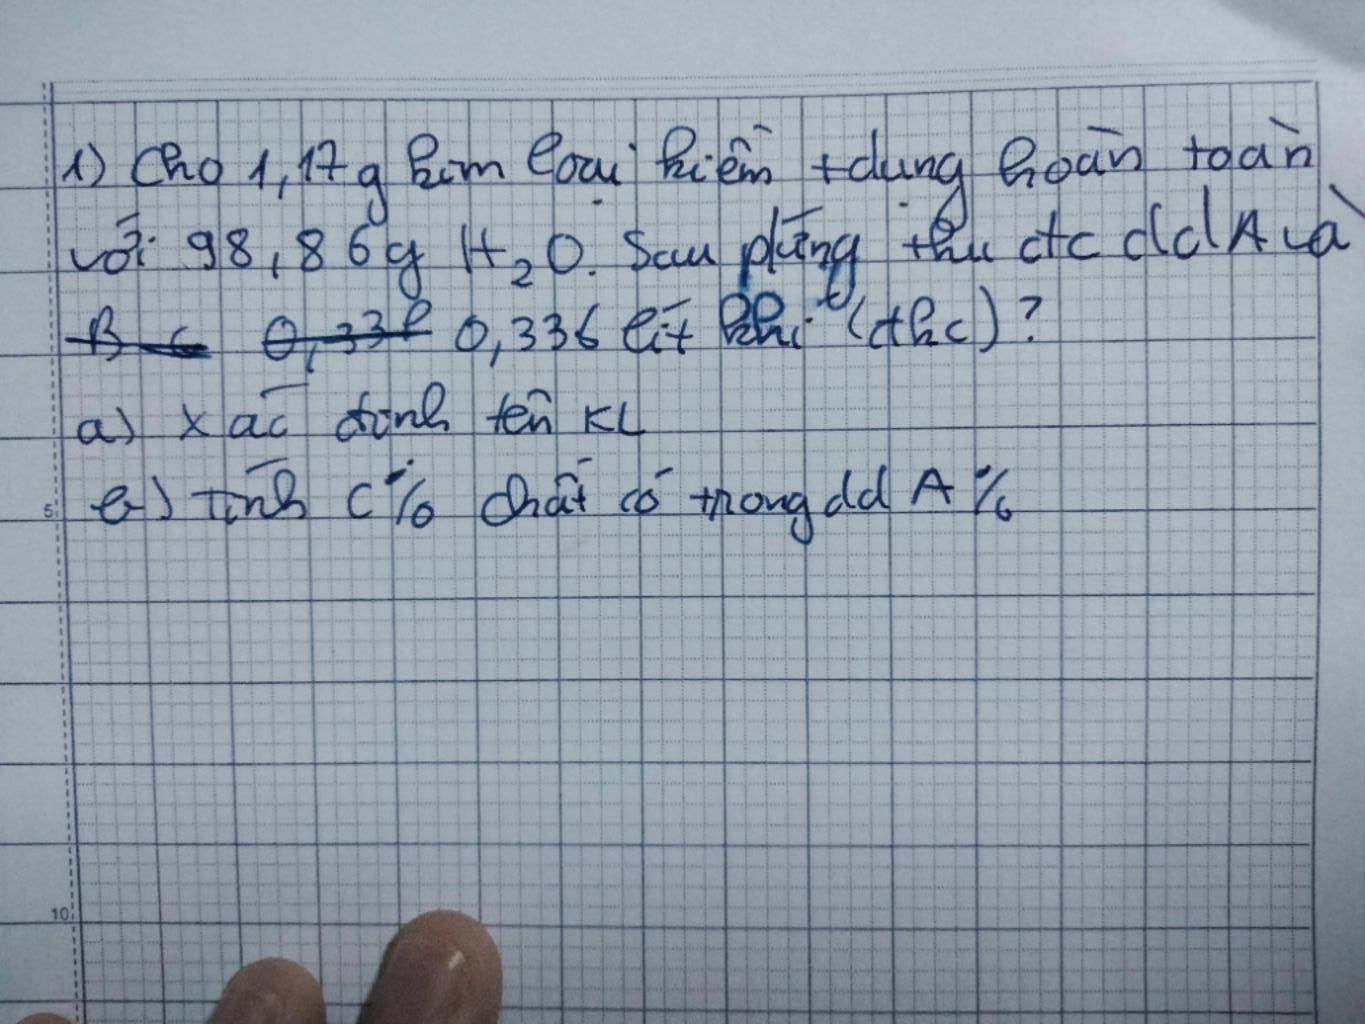 1) Cho 1,17g kim loại kiềm tdụng hoàn toàn
với 98,86g H₂O. Sau pứng thu đc ddA và
0,336 lít khí (đkc)?
a) Xác định tên KL
b) Tính C% chất có trong dd A%
5
10